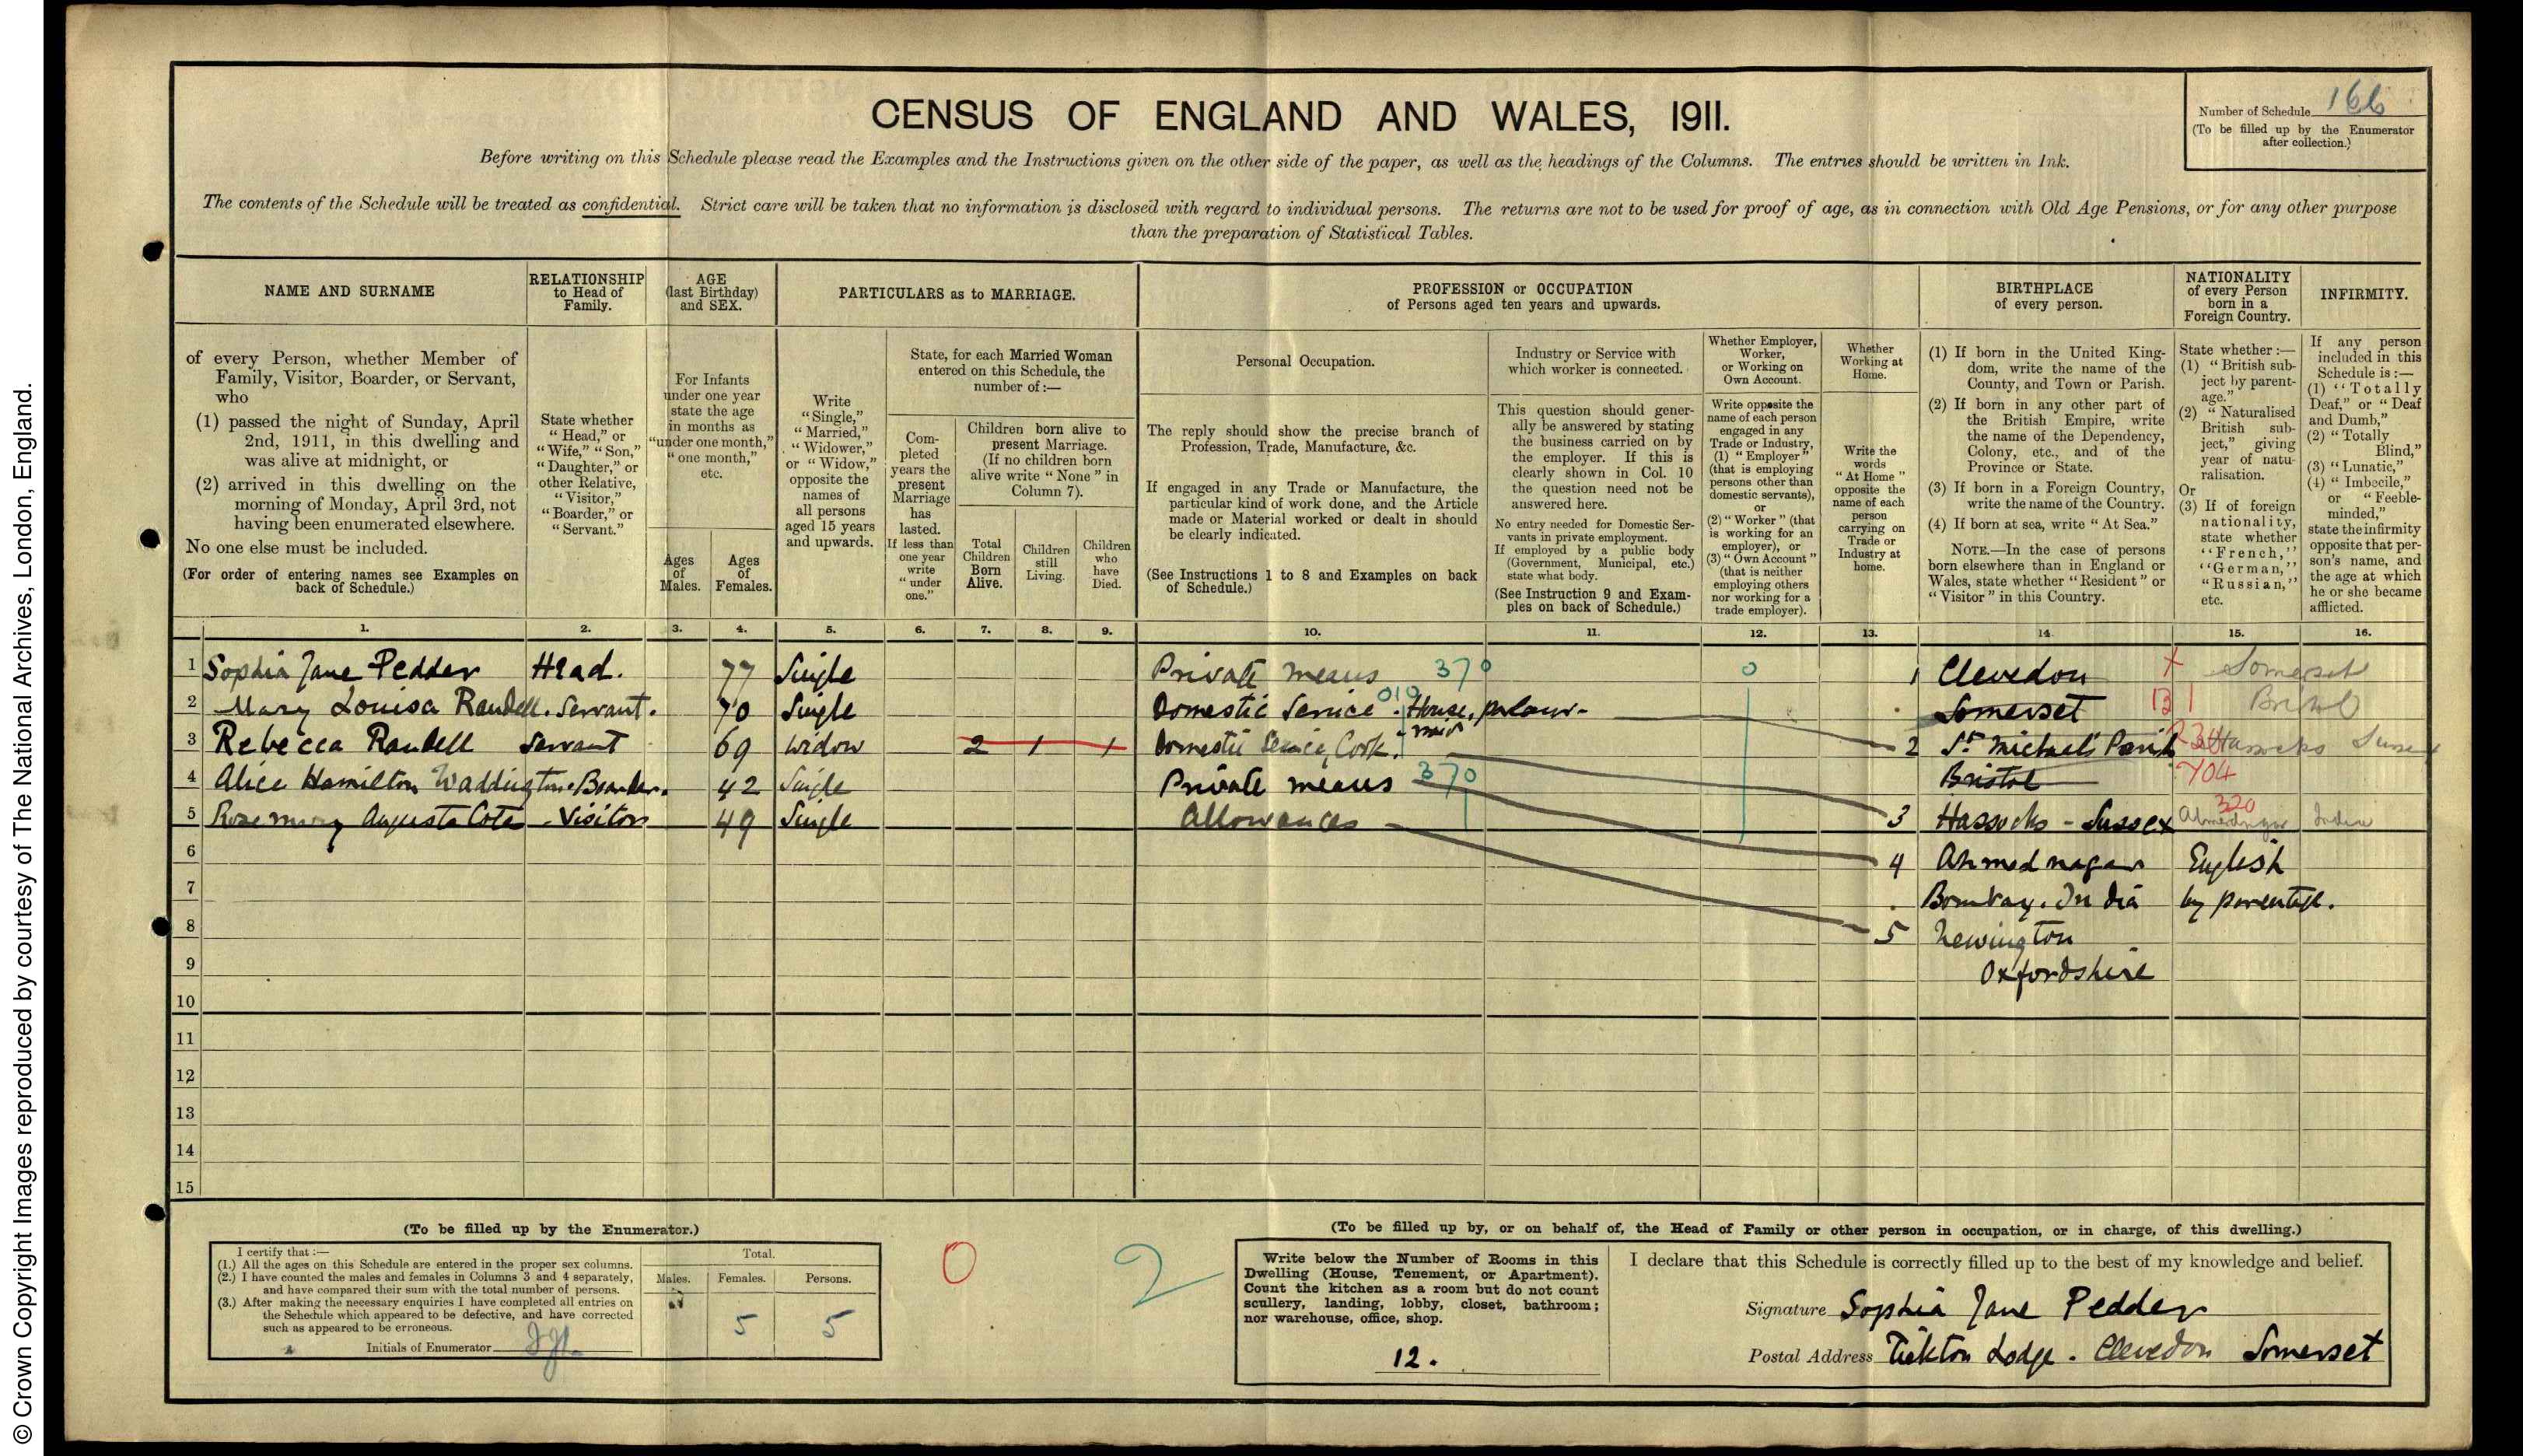 © Crown Copyright Images reproduced by courtesy of The National Archives, London, England.
CENSUS OF ENGLAND AND WALES, 1911.
Number of Schedule 166
(To be filled up by the Enumerator
after collection.)
Before writing on this Schedule please read the Examples and the Instructions given on the other side of the paper, as well as the headings of the Columns. The entries should be written in Ink.
The contents of the Schedule will be treated as confidential. Strict care will be taken that no information is disclosed with regard to individual persons. The returns are not to be used for proof of age, as in connection with Old Age Pensions, or for any other purpose
than the preparation of Statistical Tables.
NAME AND SURNAME
of every Person, whether Member of
Family, Visitor, Boarder, or Servant,
who
(1) passed the night of Sunday, April
2nd, 1911, in this dwelling and
was alive at midnight, or
(2) arrived in this dwelling on the
morning of Monday, April 3rd, not
having been enumerated elsewhere.
No one else must be included.
(For order of entering names see Examples on
back of Schedule.)
RELATIONSHIP
to Head of
Family.
State whether
"Head," or
"Wife," "Son,"
"Daughter," or
other Relative,
"Visitor,"
"Boarder," or
"Servant."
AGE
(last Birthday)
and SEX.
For Infants
under one year
state the age
in months as
"under one month,"
"one month,"
etc.
Ages
of
Males.
Ages
of
Females.
PARTICULARS as to MARRIAGE.
Write
"Single,"
"Married,"
"Widower,"
or "Widow,"
opposite the
names of
all persons
aged 15 years
and upwards.
State, for each Married Woman
entered on this Schedule, the
number of:—
Com-
pleted
years the
present
Marriage
has
lasted.
If less than
one year
write
"under
one."
Children born alive to
present Marriage.
(If no children born
alive write "None" in
Column 7).
Total
Children
Born
Alive.
Children
still
Living.
Children
who
have
Died.
PROFESSION or OCCUPATION
of Persons aged ten years and upwards.
Personal Occupation.
The reply should show the precise branch of
Profession, Trade, Manufacture, &c.
If engaged in any Trade or Manufacture, the
particular kind of work done, and the Article
made or Material worked or dealt in should
be clearly indicated.
(See Instructions 1 to 8 and Examples on back
of Schedule.)
Industry or Service with
which worker is connected.
This question should gener-
ally be answered by stating
the business carried on by
the employer. If this is
clearly shown in Col. 10
the question need not be
answered here.
No entry needed for Domestic Ser-
vants in private employment.
If employed by a public body
(Government, Municipal, etc.)
state what body.
(See Instruction 9 and Exam-
ples on back of Schedule.)
Whether Employer,
Worker,
or Working on
Own Account.
Write opposite the
name of each person
engaged in any
Trade or Industry,
(1) "Employer"
(that is employing
persons other than
domestic servants),
or
(2) "Worker" (that
is working for an
employer), or
(3) "Own Account"
(that is neither
employing others
nor working for a
trade employer).
Whether
Working at
Home.
Write the
words
"At Home"
opposite the
name of each
person
carrying on
Trade or
Industry at
home.
BIRTHPLACE
of every person.
(1) If born in the United King-
dom, write the name of the
County, and Town or Parish.
(2) If born in any other part of
the British Empire, write
the name of the Dependency,
Colony, etc., and of the
Province or State.
(3) If born in a Foreign Country,
write the name of the Country.
(4) If born at sea, write "At Sea."
NOTE.—In the case of persons
born elsewhere than in England or
Wales, state whether "Resident" or
"Visitor" in this Country.
NATIONALITY
of every Person
born in a
Foreign Country.
State whether:—
(1) "British sub-
ject by parent-
age."
(2) "Naturalised
British sub-
ject," giving
year of natu-
ralisation.
Or
(3) If of foreign
nationality,
state whether
"French,"
"German,"
"Russian,"
etc.
INFIRMITY.
If any person
included in this
Schedule is:—
(1) "Totally
Deaf," or "Deaf
and Dumb,"
(2) "Totally
Blind,"
(3) "Lunatic,"
(4) "Imbecile,"
or "Feeble-
minded,"
state the infirmity
opposite that per-
son's name, and
the age at which
he or she became
afflicted.
1. 2. 3. 4. 5. 6. 7. 8. 9. 10. 11. 12. 13. 14. 15. 16.
1 Sophia Jane Pedder Head. 77 Single Private means 370 0 1 Clevedon Somerset
2 Mary Louisa Randell. Servant. 70 Single Domestic Service. House, parlour- maid 010 Somerset B1 Bristol
3 Rebecca Randell Servant 69 Widow 2 1 1 Domestic Service, Cook. 2 St. Michael's Parish Hassocks Sussex
4 Alice Hamilton Waddington. Boarder. 42 Single Private means 370 Bristol 704
5 Rose Mary Augusta Cotes Visitor 49 Single Allowances 3 Hassocks - Sussex 320 Ahmednagar India
6 4 Ahmednagar English
7 Bombay. India by parentage.
8 5 Newington
9 Oxfordshire
10
11
12
13
14
15
(To be filled up by the Enumerator.)
I certify that:—
(1.) All the ages on this Schedule are entered in the proper sex columns.
(2.) I have counted the males and females in Columns 3 and 4 separately,
and have compared their sum with the total number of persons.
(3.) After making the necessary enquiries I have completed all entries on
the Schedule which appeared to be defective, and have corrected
such as appeared to be erroneous.
Initials of Enumerator
Total.
Males. Females. Persons.
5 5
0 2
(To be filled up by, or on behalf of, the Head of Family or other person in occupation, or in charge, of this dwelling.)
Write below the Number of Rooms in this
Dwelling (House, Tenement, or Apartment).
Count the kitchen as a room but do not count
scullery, landing, lobby, closet, bathroom;
nor warehouse, office, shop.
12.
I declare that this Schedule is correctly filled up to the best of my knowledge and belief.
Signature Sophia Jane Pedder
Postal Address Tickton Lodge. Clevedon Somerset